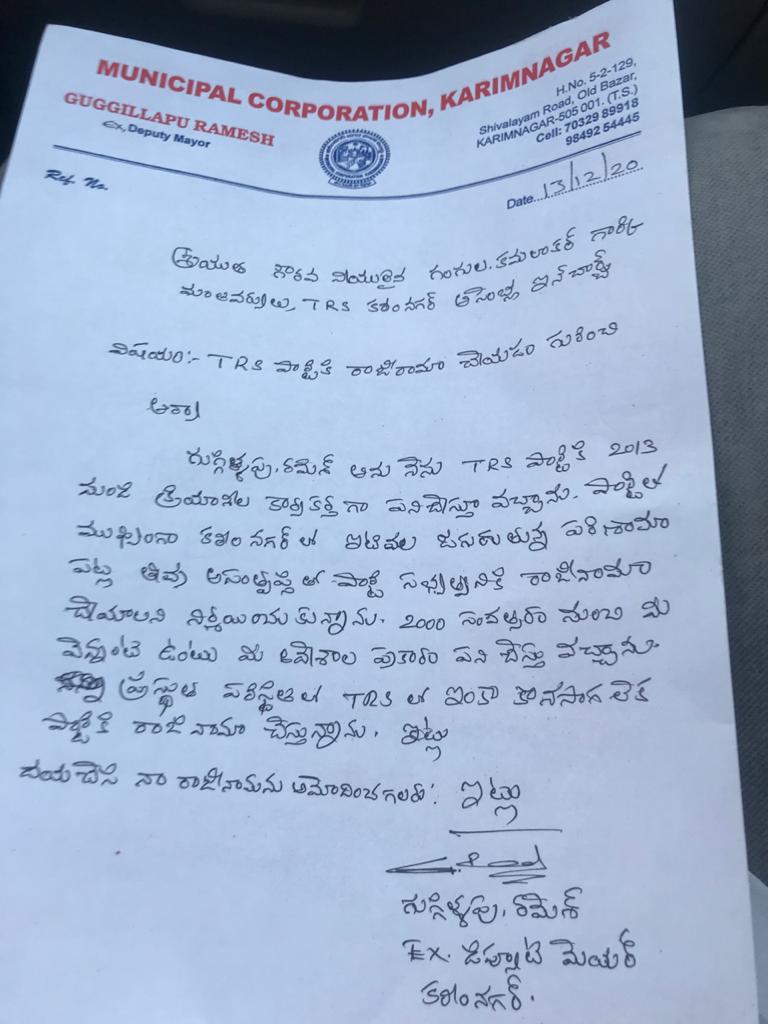 MUNICIPAL CORPORATION, KARIMNAGAR
GUGGILLAPU RAMESH
Ex, Deputy Mayor
H.No. 5-2-129,
Shivalayam Road, Old Bazar,
KARIMNAGAR-505 001. (T.S.)
Cell: 70329 89918
98492 54445
Ref. No.
Date 13/12/20
గౌరవ గంగుల. కమలాకర్ గారికి
TRS కరీంనగర్ అసెంబ్లీ ఇన్ చార్జ్
విషయం:- TRS పార్టీకి రాజీనామా చేయడం గురించి
ఆర్యా
గుగ్గిళ్ళపు. రమేష్ అను నేను TRS పార్టీకి 2013
నుండి క్రియాశీల కార్యకర్త గా పనిచేస్తూ వచ్చాను. పార్టీలో
ముఖ్యంగా కరీంనగర్ లో ఇటీవల జరుగుతున్న
పట్ల తీవ్ర అసంతృప్తి తో పార్టీ సభ్యత్వానికి రాజీనామా
చేయాలని నిర్ణయించుకున్నాను. 2000 నుండి మీ
వెన్నంటే ఉంటు మీ ఆదేశాల ప్రకారం పని చేస్తు వచ్చాను.
ప్రస్థుత పరిస్థితిలో TRS లో ఇంకా కొనసాగ లేక
పార్టీకి రాజీనామా చేస్తున్నాను. ఇట్లు
దయచేసి నా రాజీనామను ఆమోదించగలరు. ఇట్లు
గుగ్గిళ్ళపు. రమేశ్
Ex. డిప్యూటి మేయర్
కరీంనగర్.